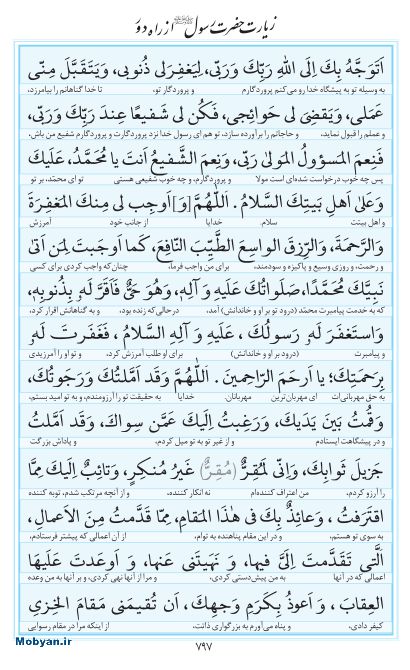 زیارت حضرت رسول ﷺ از راه دور
اَتَوَجَّهُ بِكَ اِلَى اللهِ رَبِّكَ وَرَبّى، لِيَغفِرَ لى ذُنوبى، وَيَتَقَبَّلَ مِنّى
به وسیله تو به پیشگاه خدا رو می‌کنم پروردگارم و پروردگار تو، تا خدا گناهانم را بیامرزد،
عَمَلى، وَيَقضِىَ لى حَوائِجى، فَكُن لى شَفيعًا عِندَ رَبِّكَ وَرَبّى،
و عملم را قبول نماید، و حاجاتم را برآورده سازد، تو هم ای رسول خدا نزد پروردگارت و پروردگارم شفیع من باش،
فَنِعمَ المَسؤولُ المَولىٰ رَبّى، وَنِعمَ الشَّفيعُ اَنتَ يا مُحَمَّدُ، عَلَيكَ
پس چه خوب درخواست شده‌ای است مولا و پروردگارم، و چه خوب شفیعی هستی تو ای محمّد، بر تو
وَعَلىٰ اَهلِ بَيتِكَ السَّلامُ. اَللّٰهُمَّ [وَ] اَوجِب لى مِنكَ المَغفِرَةَ
و اهل بیتت سلام. خدایا از جانب خود آمرزش
وَالرَّحمَةَ، وَالرِّزقَ الواسِعَ الطَّيِّبَ النّافِعَ، كَما اَوجَبتَ لِمَن اَتىٰ
و رحمت، و روزی وسیع و پاکیزه و سودمند، برای من واجب فرما، چنان‌که واجب کردی برای کسی
نَبِيَّكَ مُحَمَّدًا، صَلَواتُكَ عَلَيهِ وَ آلِهِ، وَهُوَ حَىٌّ فَاَقَرَّ لَهُ بِذُنوبِهِ،
که به خدمت پیامبرت محمّد (درود تو بر او و خاندانش) آمد، درحالی‌که زنده بود، و به گناهانش اقرار کرد،
وَاستَغفَرَ لَهُ رَسولُكَ، عَلَيهِ وَ آلِهِ السَّلامُ، فَغَفَرتَ لَهُ
و پیامبرت (درود بر او و خاندانش) برای او طلب آمرزش کرد، و تو او را آمرزیدی
بِرَحمَتِكَ؛ يا اَرحَمَ الرّاحِمينَ. اَللّٰهُمَّ وَقَد اَمَّلتُكَ وَرَجَوتُكَ،
به حق مهربانی‌ات ای مهربان‌ترین مهربانان. خدایا به حقیقت تو را آرزومندم، و به تو امید بستم،
وَقُمتُ بَينَ يَدَيكَ، وَرَغِبتُ اِلَيكَ عَمَّن سِواكَ، وَقَد اَمَّلتُ
و در پیشگاهت ایستادم و از غیر تو به تو میل کردم، و پاداش بزرگت
جَزيلَ ثَوابِكَ، وَاِنّى لَمُقِرٌّ (مُقِرٌّ) غَيرُ مُنكِرٍ، وَتائِبٌ اِلَيكَ مِمَّا
را آرزو کردم، من اعتراف کننده‌ام نه انکار کننده، و از آنچه مرتکب شدم، توبه کننده
اقتَرَفتُ، وَعائِذٌ بِكَ فى هٰذَا المَقامِ، مِمّا قَدَّمتُ مِنَ الاَعمالِ،
به سوی تو هستم، و در این مقام پناهنده به توام، از آن اعمالی که پیشتر فرستادم،
اَلَّتى تَقَدَّمتَ اِلَىَّ فيها، وَ نَهَيتَنى عَنها، وَ اَوعَدتَ عَلَيهَا
اعمالی که در آنها به من پیش‌دستی کردی، و مرا از آنها نهی کردی، و بر آنها به من وعده
العِقابَ، وَ اَعوذُ بِكَرَمِ وَجهِكَ، اَن تُقيمَنى مَقامَ الخِزىِ
کیفر دادی، و پناه می‌آورم به بزرگواری ذاتت، از اینکه مرا در مقام رسوایی
۷۹۷
Mobyan.ir